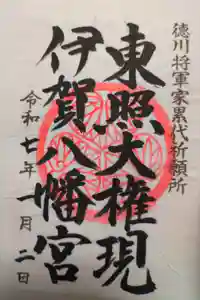 徳川将軍家累代祈願所
東照大権現
伊賀八幡宮
令和七年一月二日